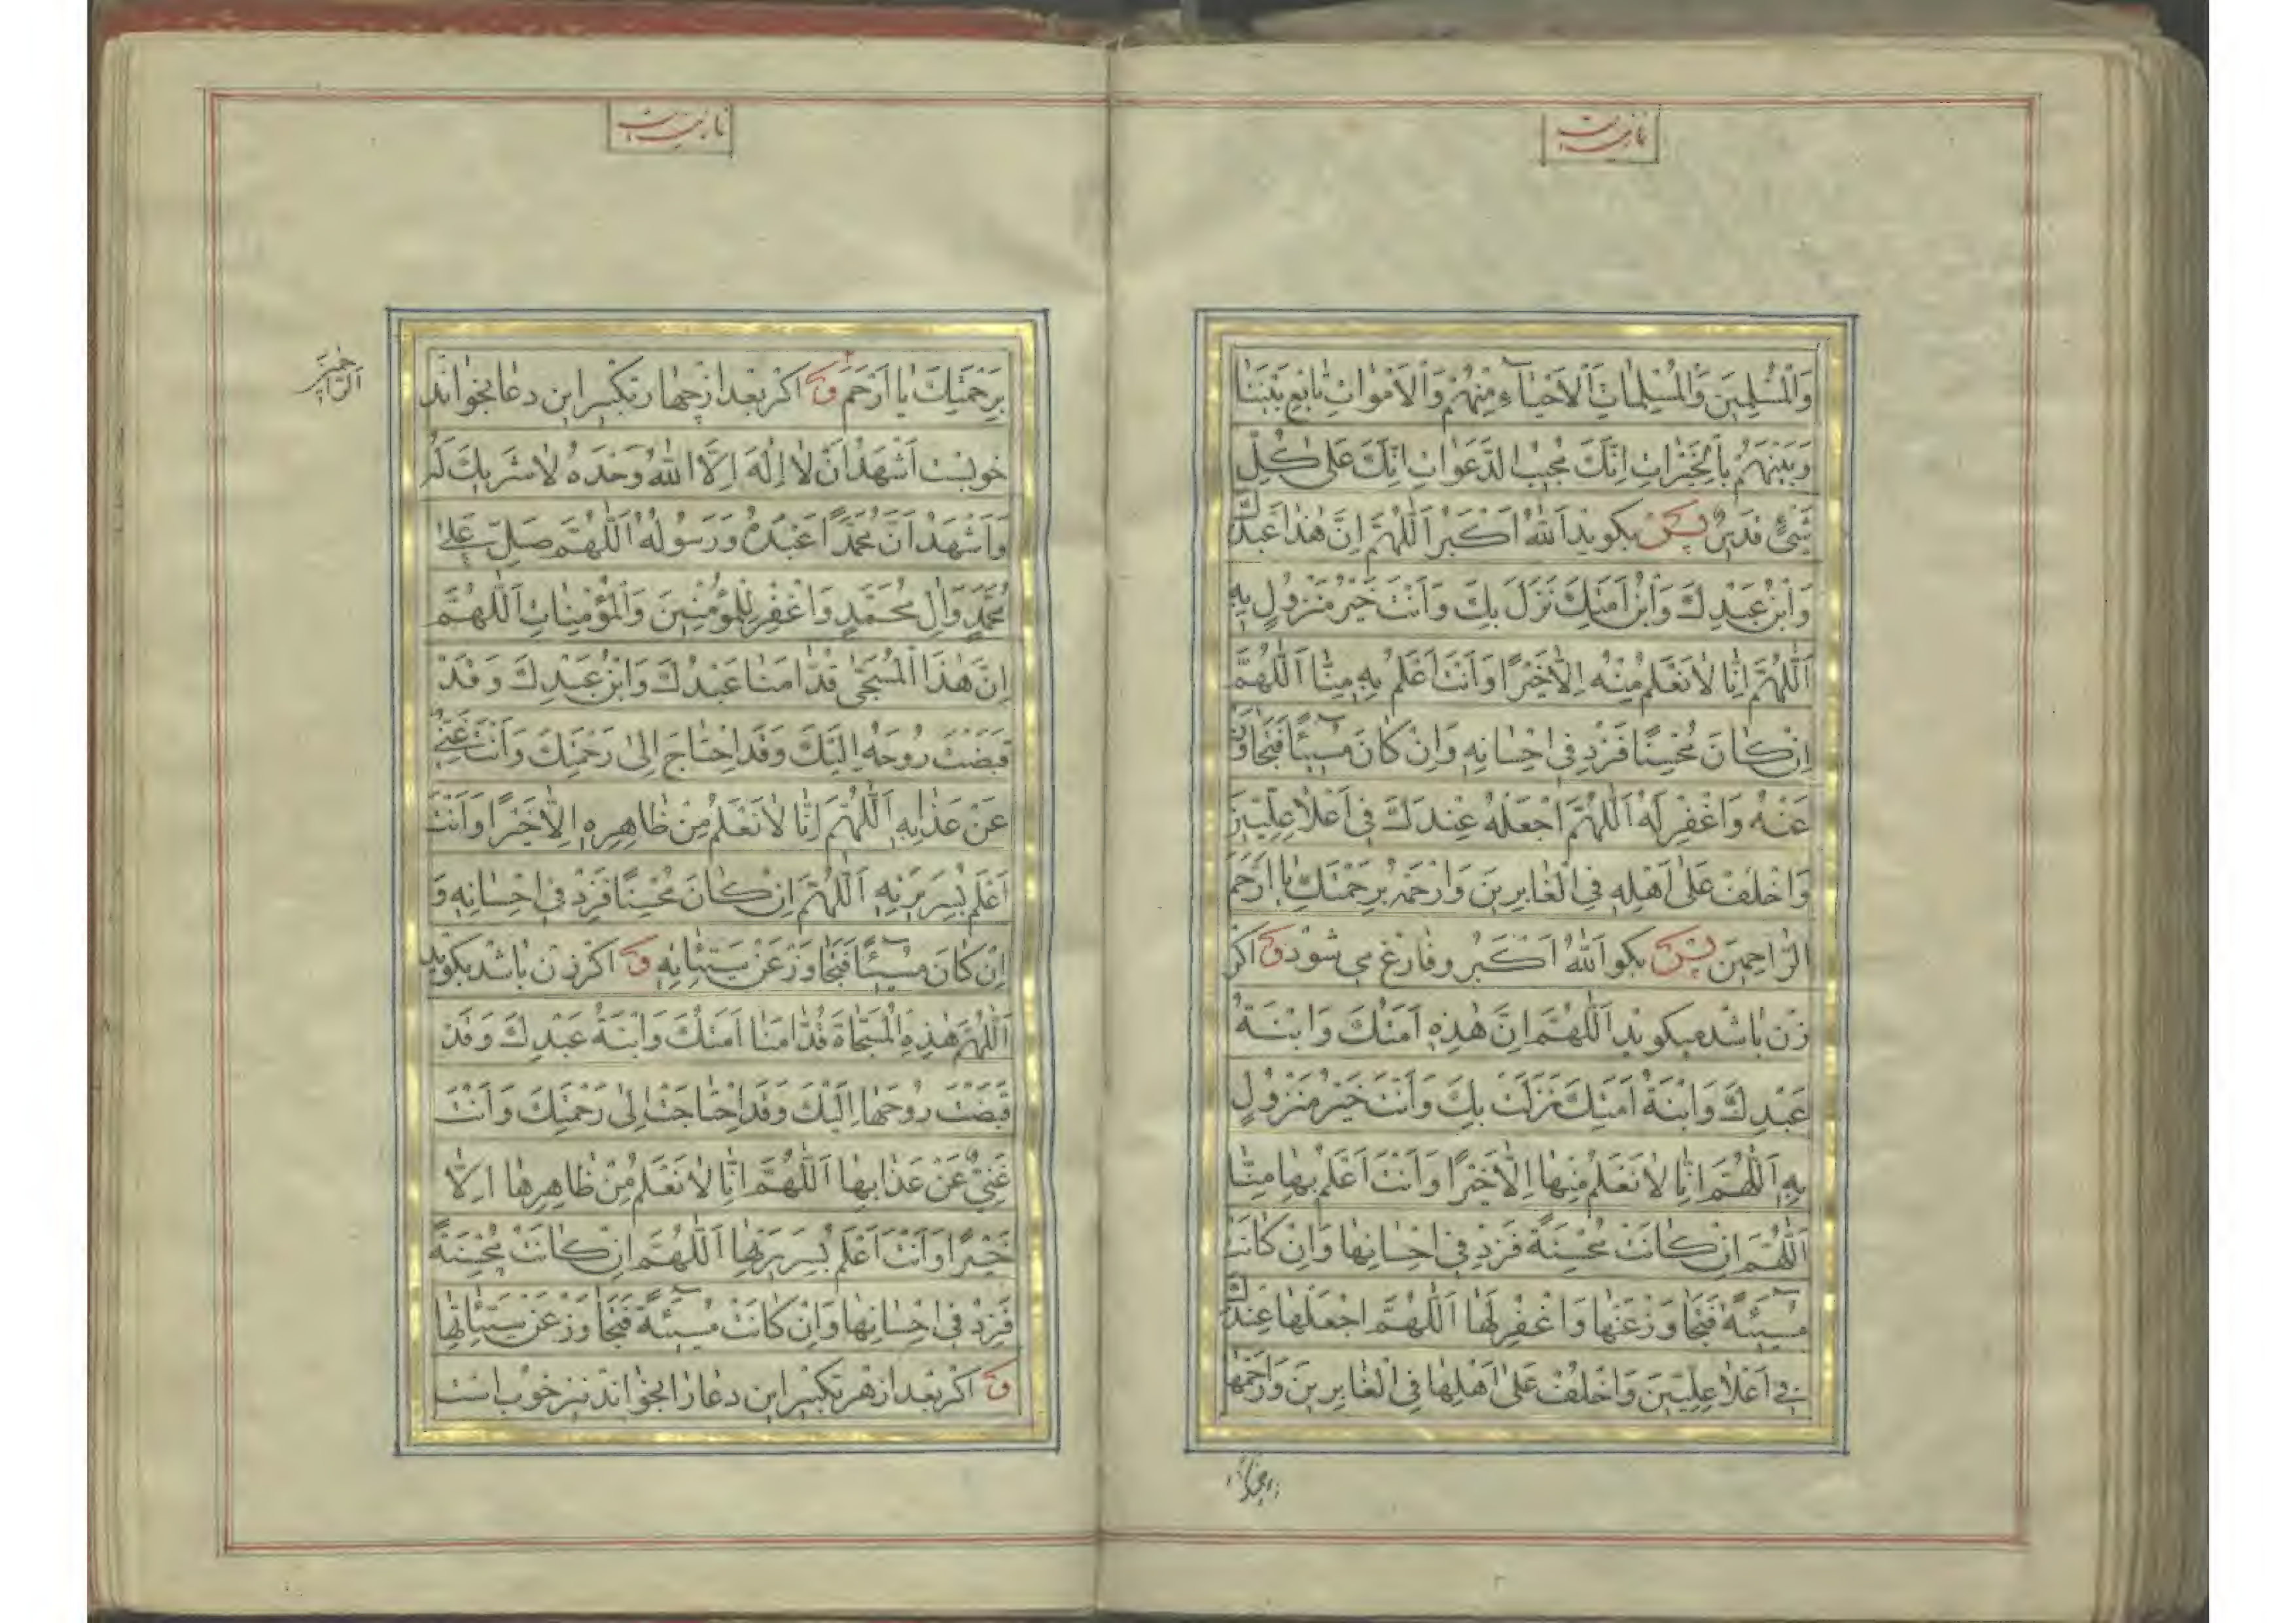 نماز میت
وَالْمُسْلِمینَ وَالْمُسْلِماتِ اَلْاَحْیآءِ مِنْهُمْ وَالْاَمْواتِ تابِعْ بَیْنَنا
وَبَیْنَهُمْ بِالْخَیْراتِ اِنَّكَ مُجیبُ الدَّعَواتِ اِنَّكَ عَلیٰ كُلِّ
شَیْءٍ قَدیرٌ پس بگوید اَللّٰهُ اَكْبَرُ اَللّٰهُمَّ اِنَّ هٰذا عَبْدُكَ
وَابْنُ عَبْدِكَ وَابْنُ اَمَتِكَ نَزَلَ بِكَ وَاَنْتَ خَیْرُ مَنْزُولٍ بِهِ
اَللّٰهُمَّ اِنّا لا نَعْلَمُ مِنْهُ اِلّا خَیْرًا وَاَنْتَ اَعْلَمُ بِهِ مِنّا اَللّٰهُمَّ
اِنْ كانَ مُحْسِنًا فَزِدْ فی اِحْسانِهِ وَاِنْ كانَ مُسیٓئًا فَتَجاوَزْ
عَنْهُ وَاغْفِرْ لَهُ اَللّٰهُمَّ اجْعَلْهُ عِنْدَكَ فی اَعْلا عِلِّیّینَ
وَاخْلُفْ عَلیٰ اَهْلِهِ فِی الْغابِرینَ وَارْحَمْهُ بِرَحْمَتِكَ یا اَرْحَمَ
الرّاحِمینَ پس بگو اَللّٰهُ اَكْبَرُ و فارغ می شود و اگر
زن باشد میگوید اَللّٰهُمَّ اِنَّ هٰذِهِ اَمَتُكَ وَابْنَةُ
عَبْدِكَ وَابْنَةُ اَمَتِكَ نَزَلَتْ بِكَ وَاَنْتَ خَیْرُ مَنْزُولٍ
بِهِ اَللّٰهُمَّ اِنّا لا نَعْلَمُ مِنْها اِلّا خَیْرًا وَاَنْتَ اَعْلَمُ بِها مِنّا
اَللّٰهُمَّ اِنْ كانَتْ مُحْسِنَةً فَزِدْ فی اِحْسانِها وَاِنْ كانَتْ
مُسیٓئَةً فَتَجاوَزْ عَنْها وَاغْفِرْ لَها اَللّٰهُمَّ اجْعَلْها عِنْدَكَ
فی اَعْلا عِلِّیّینَ وَاخْلُفْ عَلیٰ اَهْلِها فِی الْغابِرینَ وَارْحَمْها
نماز میت
بِرَحْمَتِكَ یا اَرْحَمَ و اگر بعد از چهار تکبیر این دعا بخواند
الرّاحمین
خوبست اَشْهَدُ اَنْ لا اِلٰهَ اِلَّا اللّٰهُ وَحْدَهُ لا شَریكَ لَهُ
وَاَشْهَدُ اَنَّ مُحَمَّدًا عَبْدُهُ وَرَسُولُهُ اَللّٰهُمَّ صَلِّ عَلیٰ
مُحَمَّدٍ وَالِ مُحَمَّدٍ وَاغْفِرْ لِلْمُؤْمِنینَ وَالْمُؤْمِناتِ اَللّٰهُمَّ
اِنَّ هٰذَا الْمُسَجّیٰ قُدّامَنا عَبْدُكَ وَابْنُ عَبْدِكَ وَقَدْ
قَبَضْتَ رُوحَهُ اِلَیْكَ وَقَدِ احْتاجَ اِلیٰ رَحْمَتِكَ وَاَنْتَ غَنِیٌّ
عَنْ عَذابِهِ اَللّٰهُمَّ اِنّا لا نَعْلَمُ مِنْ ظاهِرِهِ اِلّا خَیْرًا وَاَنْتَ
اَعْلَمُ بِسَریرَتِهِ اَللّٰهُمَّ اِنْ كانَ مُحْسِنًا فَزِدْ فی اِحْسانِهِ وَ
اِنْ كانَ مُسیٓئًا فَتَجاوَزْ عَنْ سَیِّئاتِهِ و اگر زن باشد بگوید
اَللّٰهُمَّ هٰذِهِ الْمُسَجّاةَ قُدّامَنا اَمَتُكَ وَابْنَةُ عَبْدِكَ وَقَدْ
قَبَضْتَ رُوحَها اِلَیْكَ وَقَدِ احْتاجَتْ اِلیٰ رَحْمَتِكَ وَاَنْتَ
غَنِیٌّ عَنْ عَذابِها اَللّٰهُمَّ اِنّا لا نَعْلَمُ مِنْ ظاهِرِها اِلّا
خَیْرًا وَاَنْتَ اَعْلَمُ بِسَریرَتِها اَللّٰهُمَّ اِنْ كانَتْ مُحْسِنَةً
فَزِدْ فی اِحْسانِها وَاِنْ كانَتْ مُسیٓئَةً فَتَجاوَزْ عَنْ سَیِّئاتِها
و اگر بعد از هر تکبیر این دعا را بخواند نیز خوب است